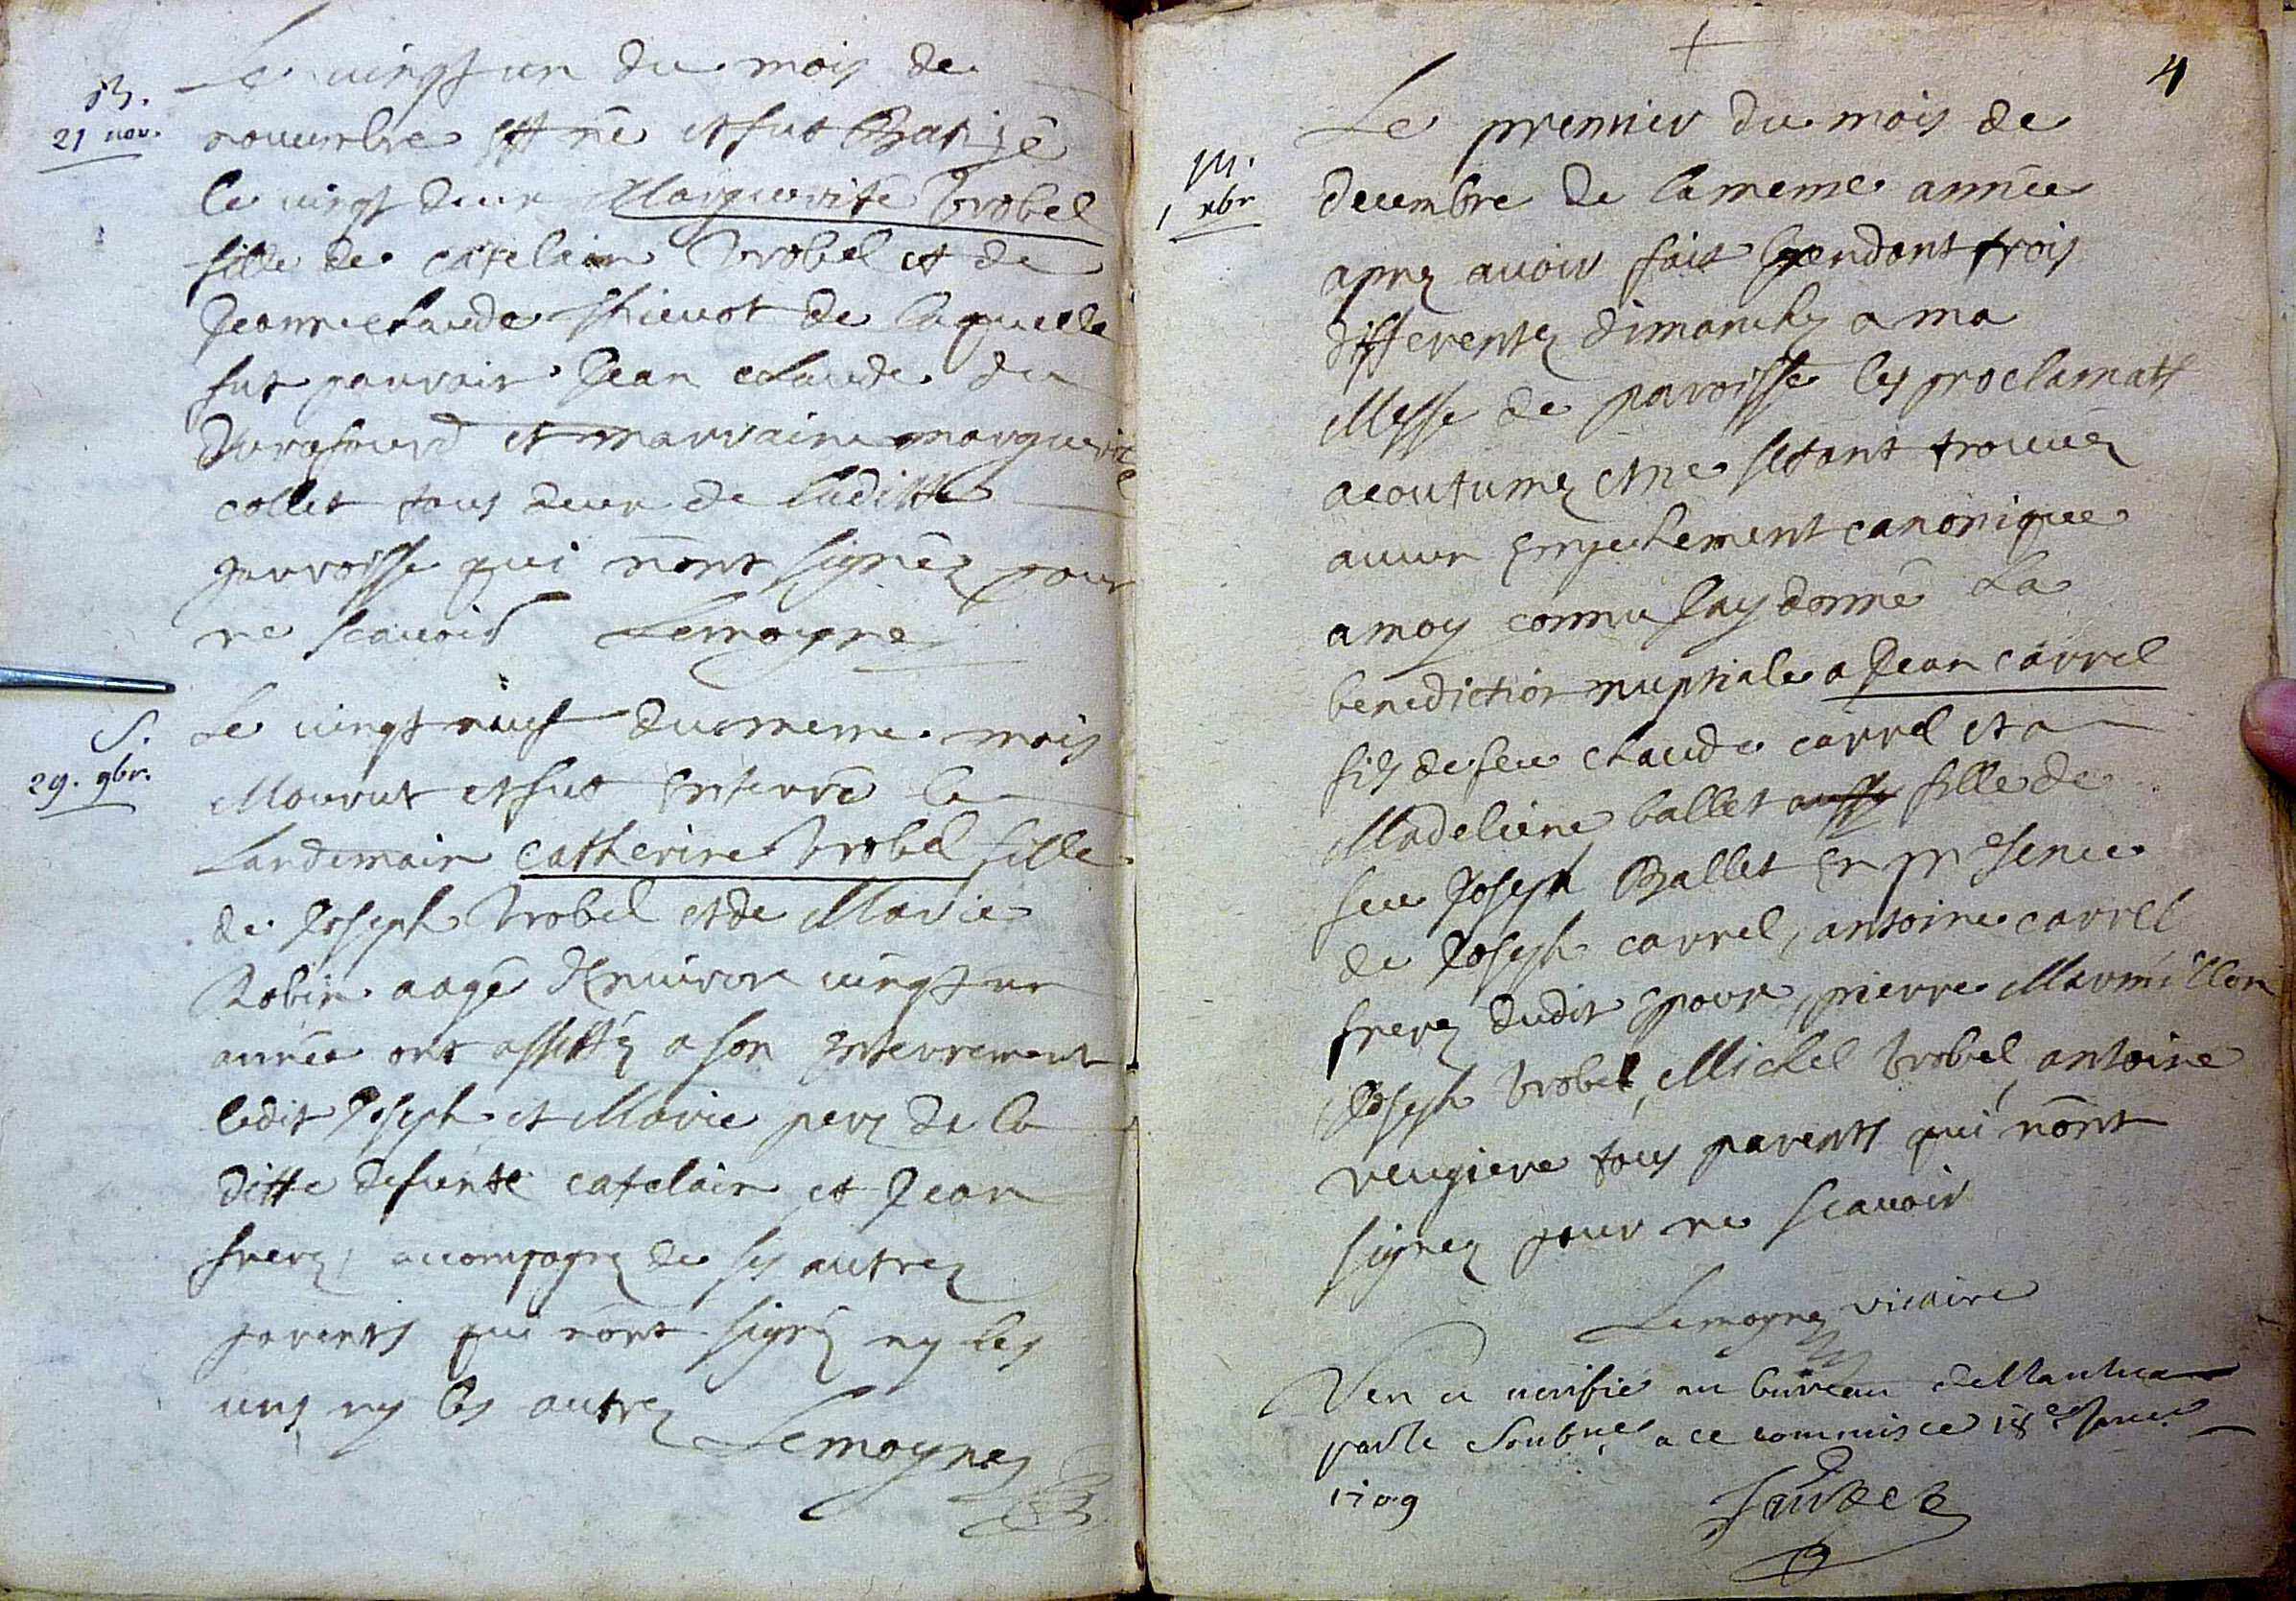 B.
21 nov.
Le vingt un du mois de
novembre est né et fut Batizé
le vingt deux Marguerite Vrobel
fille de catelain Vrobel et de
Jeanne claude thievot de laquelle
fut parrain Jean claude du
et marraine marguerite
collet tous deux de laditte
parroisse qui n'ont signéz pour
ne scavoir Lemoyne
S.
29. 9br.
Le vingt neuf du meme mois
Mourut et fut enterré le
Landemain catherine Vrobel fille
de Joseph Vrobel et de Marie
Robin aagé d'environ vingt un
année ont assistéz a son enterrement
ledit Joseph et Marie perz de la
ditte defunte catelain et Jean
frerez, acompagnez de ses autrez
parents qui n'ont signéz ny les
uns ny les autrez Lemoyne
4
M.
1 xbr
Le premier du mois de
decembre de la meme année
aprez avoir fait pendant trois
differentez dimanchez a ma
Messe de paroisse les proclamats
acoutumez et ne setant trouvéz
aucun empechement canonique
a moy connu Jay donné La
benediction nuptiale a Jean carrel
fils de feu claude carrel et a
Madeleine ballet aussy fille de
feu Joseph Ballet en presence
de Joseph carrel, antoine carrel
frerez dudit epoux, pierre Marmillon
Joseph Vrobel, Michel Vrobel, antoine
reugiere tous parents qui n'ont
signez pour ne scavoir
Lemoyne vicaire
Veu et verifié au bureau de Nantua
par le Soubne a ce commis ce 18e Janv.
1709